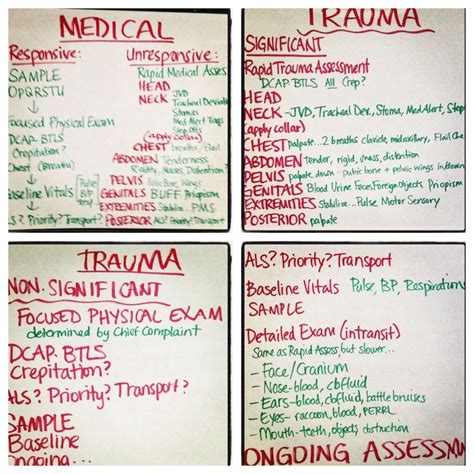 MEDICAL
Responsive:
SAMPLE
OPQRSTU
Focused Physical Exam
DCAP-BTLS
Crepitation?
Chest (Breaths)
Baseline Vitals [Pulse BP Temp]
ALS? Priority? Transport?
Unresponsive:
Rapid Medical Assess
HEAD
NECK JVD
Tracheal Deviation
Stomas
Med Alert Tags
Step Offs
(apply collar)
CHEST breaths/flail
ABDOMEN Tenderness
Rigidity, Masses, Distention
PELVIS
GENITALS BUFF Priopism
EXTREMITIES Stabilize... PMS
POSTERIOR ALS? Priority? Transport?
TRAUMA
SIGNIFICANT
Rapid Trauma Assessment
DCAP-BTLS All Crep?
HEAD
NECK -JVD, Tracheal Dev., Stoma, Med Alert, Step
(apply collar)
CHEST palpate...2 breaths clavicle, midaxillary, Flail Che
ABDOMEN tender, rigid, mass, distention
PELVIS palpate down - pubic bone + pelvic wings in/down
GENITALS Blood Urine Feces Foreign Objects Priopism
EXTREMITIES Stabilize...Pulse Motor Sensory
POSTERIOR palpate
TRAUMA
NON-SIGNIFICANT
FOCUSED PHYSICAL EXAM
determined by Chief Complaint
DCAP-BTLS
Crepitation?
ALS? Priority? Transport?
SAMPLE
Baseline
Ongoing...
ALS? Priority? Transport
Baseline Vitals Pulse, BP, Respirations
SAMPLE
Detailed Exam (intransit)
Same as Rapid Assess but slower...
- Face/Cranium
- Nose-blood, cbfluid
- Ears-blood, cbfluid, battle bruises
- Eyes- raccoon, blood, PERRL
- Mouth-teeth, objects obstruction
ONGOING ASSESSM